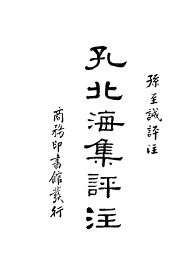 孫至誠評注
孔北海集評注
商務印書館發行